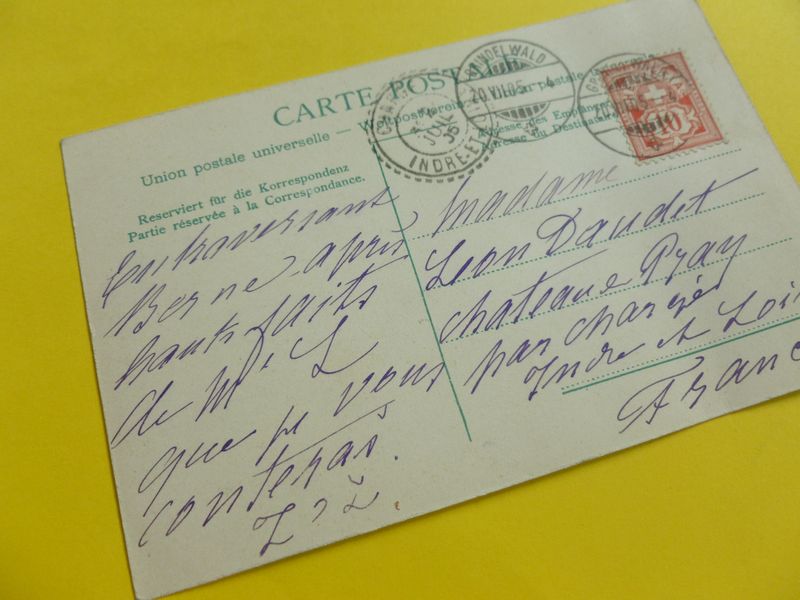 CARTE POSTALE
Union postale universelle — Weltpostverein
Reserviert für die Korrespondenz
Partie réservée à la Correspondance.
Adresse des Empfängers
Adresse du Destinataire
GRINDELWALD
20.VII.05. 4
JUIL
05
INDRE-ET
10
En traversant
Berne après
hauts faits
de Mr L
que je vous
conterai.
Madame
Léon Daudet
chateau Pray
par chargé
Indre et Loir
Franc